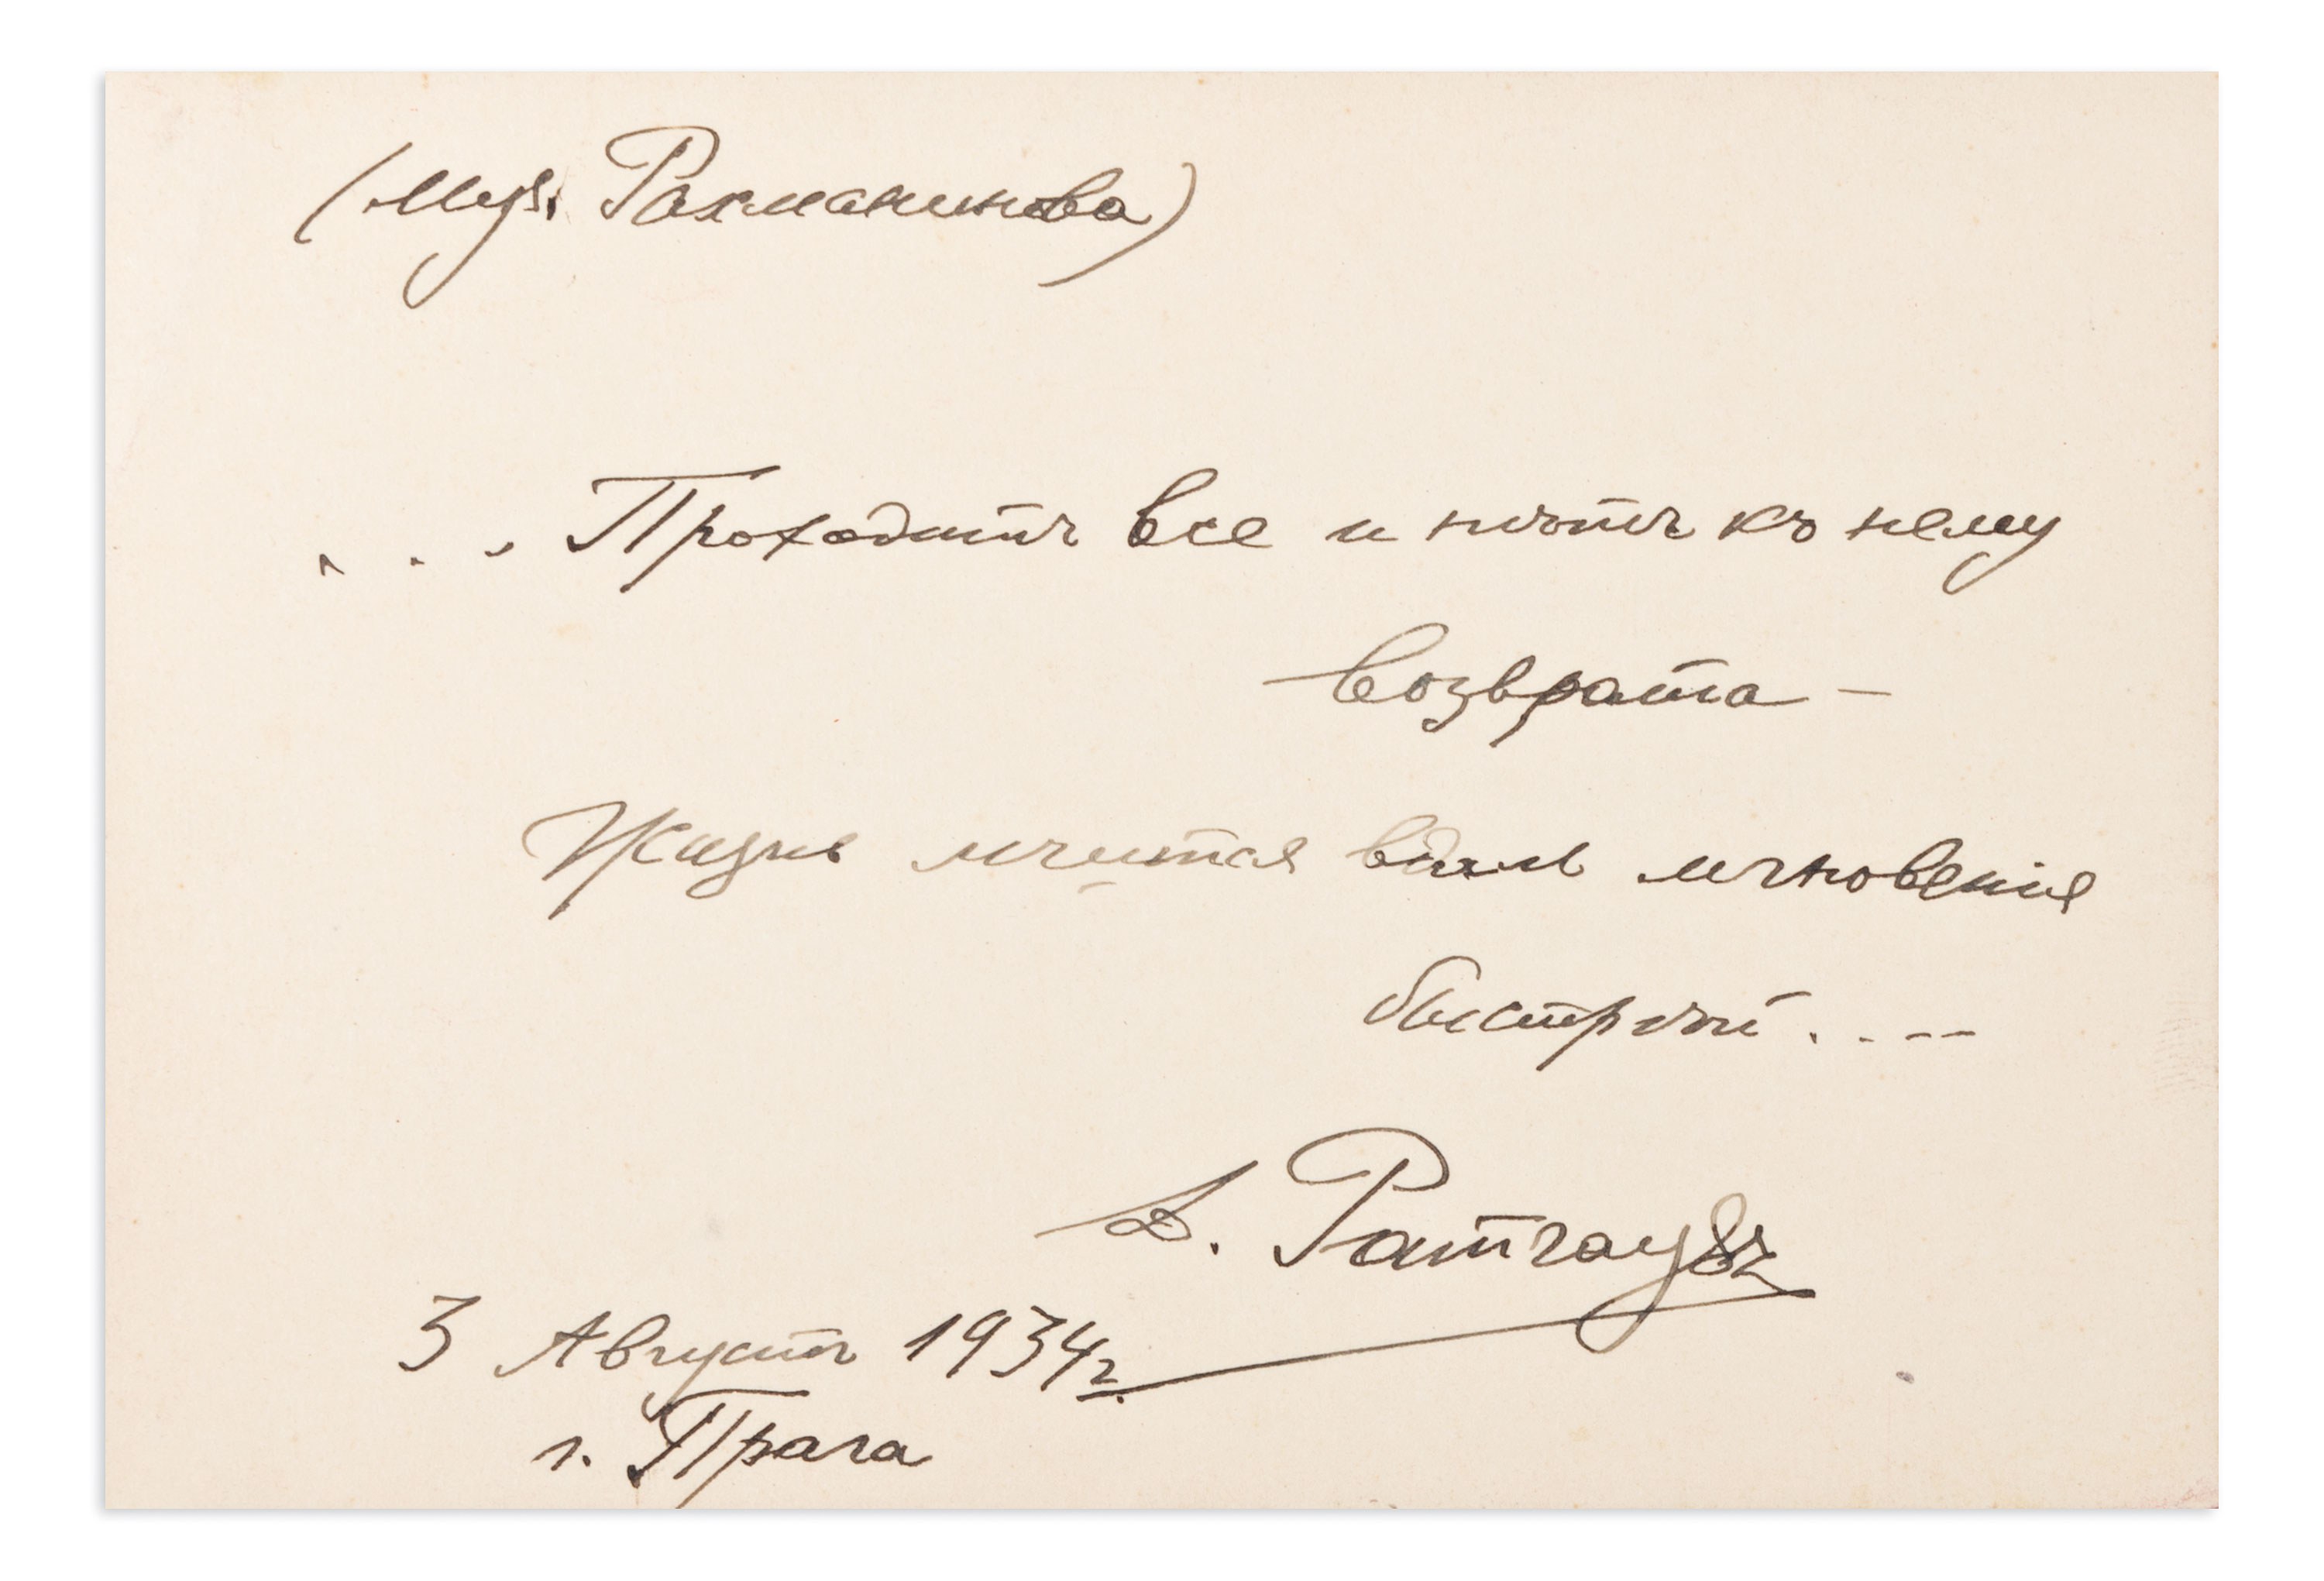 (Муз. Рахманинова)
... Проходитъ все и нѣтъ къ нему
возврата –
Жизнь мчится вдаль мгновенія
быстрѣй....
Д. Ратгаузъ
3 Августъ 1934 г.
г. Прага